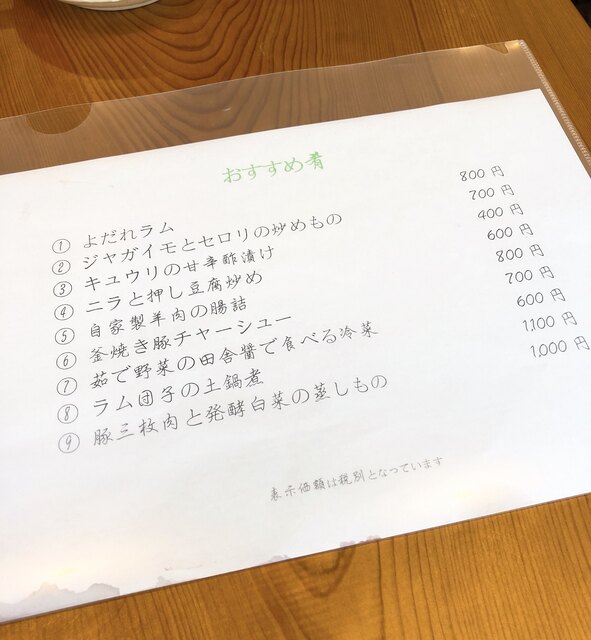 おすすめ肴
① よだれラム 800 円
② ジャガイモとセロリの炒めもの 700 円
③ キュウリの甘辛酢漬け 400 円
④ ニラと押し豆腐炒め 600 円
⑤ 自家製羊肉の腸詰 800 円
⑥ 釜焼き豚チャーシュー 700 円
⑦ 茹で野菜の田舎醤で食べる冷菜 600 円
⑧ ラム団子の土鍋煮 1,100 円
⑨ 豚三枚肉と発酵白菜の蒸しもの 1,000 円
表示価額は税別となっています